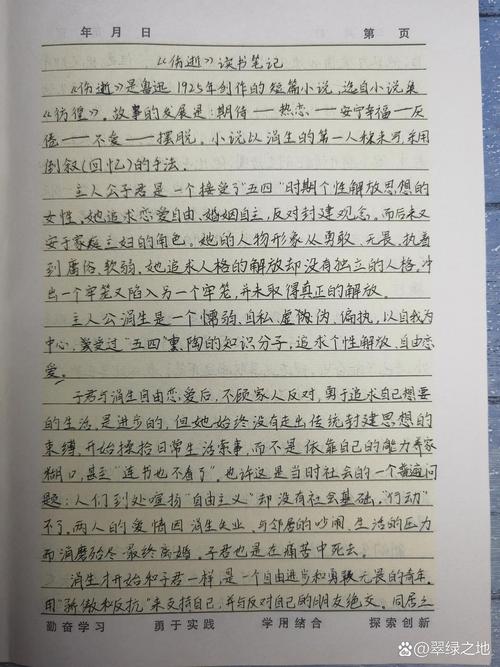 年 月 日 第 页
《伤逝》读书笔记
《伤逝》是鲁迅1925年创作的短篇小说，选自小说集
《彷徨》。故事的发展是：期待——热恋——安宁幸福——厌
倦——不爱——摆脱。小说以涓生的第一人称来写，采用
倒叙(回忆)的手法。
主人公子君是一个接受了"五四"时期个性解放思想的
女性，她追求恋爱自由、婚姻自主，反对封建观念。而后来又
安于家庭主妇的角色。她的人物形象从勇敢、无畏、执着
到庸俗、软弱。她追求人格的解放却没有独立的人格。冲
出一个牢笼又陷入另一个牢笼，并未取得真正的解放。
主人公涓生是一个懦弱、自私、虚伪、偏执，以自我为
中心，受过"五四"熏陶的知识分子，追求个性解放、自由恋
爱。
子君与涓生自由恋爱后，不顾家人反对，勇于追求自己想要
的生活，是进步的，但她始终没有走出传统封建思想的
束缚，开始操拾日常生活琐事，而不是依靠自己的能力养家
糊口，甚至"连书也不看了"。也许这是当时社会的一个普遍问
题：人们到处喧扬"自由主义"却没有社会基础，"行动"
不了。两人的爱情因涓生失业、与邻居的吵闹、生活的压力
而消磨殆尽，最终离婚，子君也是在痛苦中死去。
涓生才开始和子君一样，是一个自由进步和勇敢无畏的青年。
用"骄傲和反抗"来支持自己，并与反对自己的朋友绝交。同居之
勤奋学习 勇于实践 学用结合 探索创新
翠绿之地